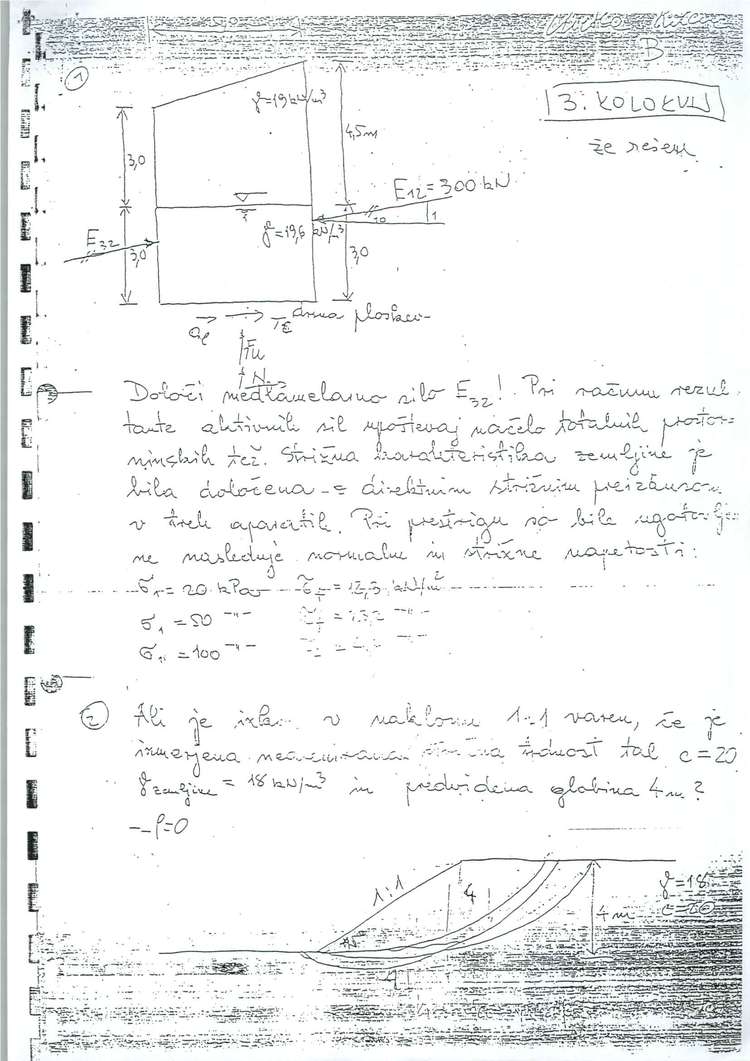 B
3. KOLOKVIJ
že rešen
1
γ=19 kN/m³
4,5m
3,0
E₁₂=300 kN
10
1
γ=19,6 kN/m³
E₃₂
3,0
3,0
drsna ploskev
Fu
N
Določi medlamelarno silo E₃₂! Pri računu rezul-
tante aktivnih sil upoštevaj načelo totalnih prostor-
ninskih tež. Strižna karakteristika zemljine je
bila določena z direktnim strižnim preizkusom
v treh aparatih. Pri prestrigu so bile ugotovlje-
ne naslednje normalne in strižne napetosti:
σ₁=20 kPa
σ₁=50 -"-
σ₁=100 -"-
2 Ali je izkop v naklonu 1:1 varen, če je
izmerjena nedrenirana strižna trdnost tal c=20
γ zemljine = 18 kN/m³ in predvidena globina 4m?
φ=0
1:1
4
4 m
γ=18
c=20